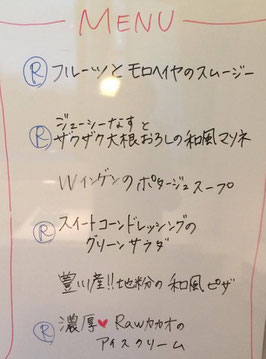 MENU
Ⓡ フルーツとモロヘイヤのスムージー
ジューシーなすと
Ⓡ ザクザク大根おろしの和風マリネ
Wインゲンのポタージュスープ
Ⓡ スイートコーンドレッシングの
グリーンサラダ
豊川産!!地粉の和風ピザ
Ⓡ 濃厚♥Rawカカオの
アイスクリーム